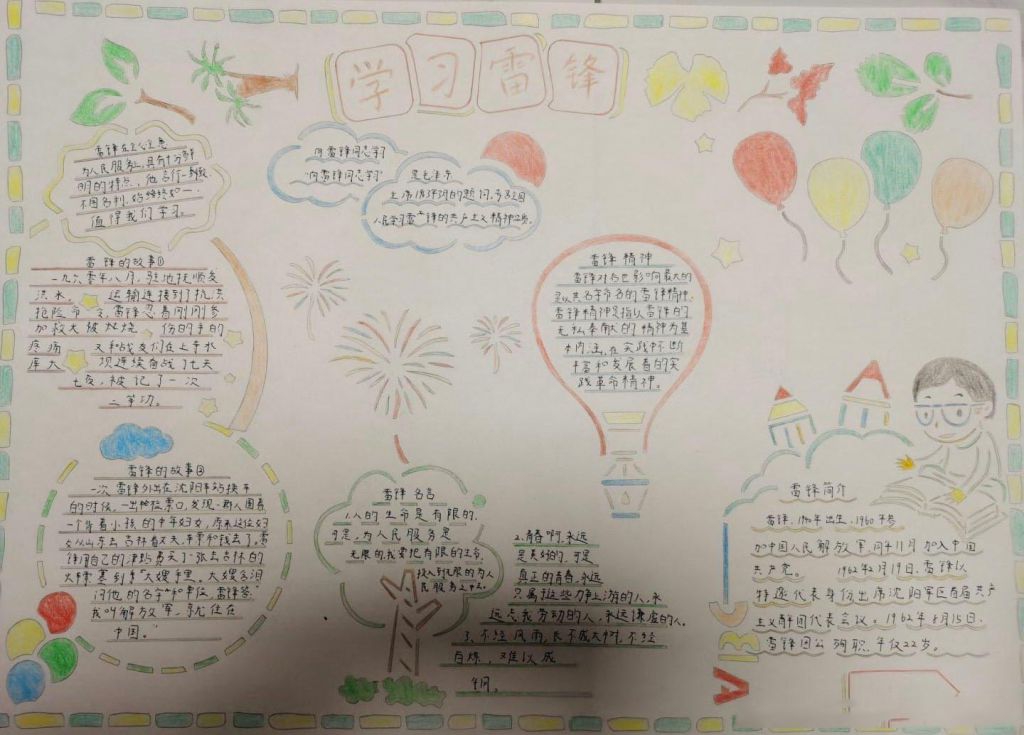 学习雷锋
雷锋在公心意
为人民服务,具有十分鲜
明的特点,他言行一致,
不图名利,始终如一,
值得我们学习。
向雷锋同志学习
“向雷锋同志学习”
是毛主席
人民学习雷锋的共产主义精神
雷锋的故事①
一九六零年八月,驻地抚顺发
洪水,运输连接到了抗洪
抢险命令,雷锋忍着刚刚参
加救火被烧伤的手的
疼痛又和战友们在上寺水
库大项连续奋战了七天
七夜,被记了一次
二等功。
雷锋精神
雷锋对后世影响最大的
是以其名字命名的雷锋精神,
雷锋精神是指以雷锋的
无私奉献的精神为基
本内涵,在实践中不断
丰富和发展着的实
践革命精神。
雷锋的故事②
一次雷锋外出在沈阳车站换车
的时候,一出检票口,发现一群人围着
一个背着小孩的中年妇女,原来这位妇
女从山东去吉林看丈夫,车票和钱丢了,雷
锋用自己的津贴费买了一张去吉林的
火车票塞到大嫂手里,大嫂含泪
问他的名字和单位,雷锋答:“
我叫解放军,就住在
中国。”
雷锋名言
1.人的生命是有限的,
可是,为人民服务是
无限的,我要把有限的生命,
投入到无限的为人
民服务之中去
2.青春啊,永远
是美好的,可是
真正的青春,永远
只属于这些力争上游的人,永
远忘我劳动的人,永远谦虚的人。
3.不经风雨,长不成大树,不经
百炼,难以成
钢。
雷锋简介
雷锋,1940年出生,1960年参
加中国人民解放军,同年11月加入中国
共产党。1962年2月19日,雷锋以
特邀代表身份出席沈阳军区首届共产
主义青年团代表会议。1962年8月15日,
雷锋因公殉职,年仅22岁。